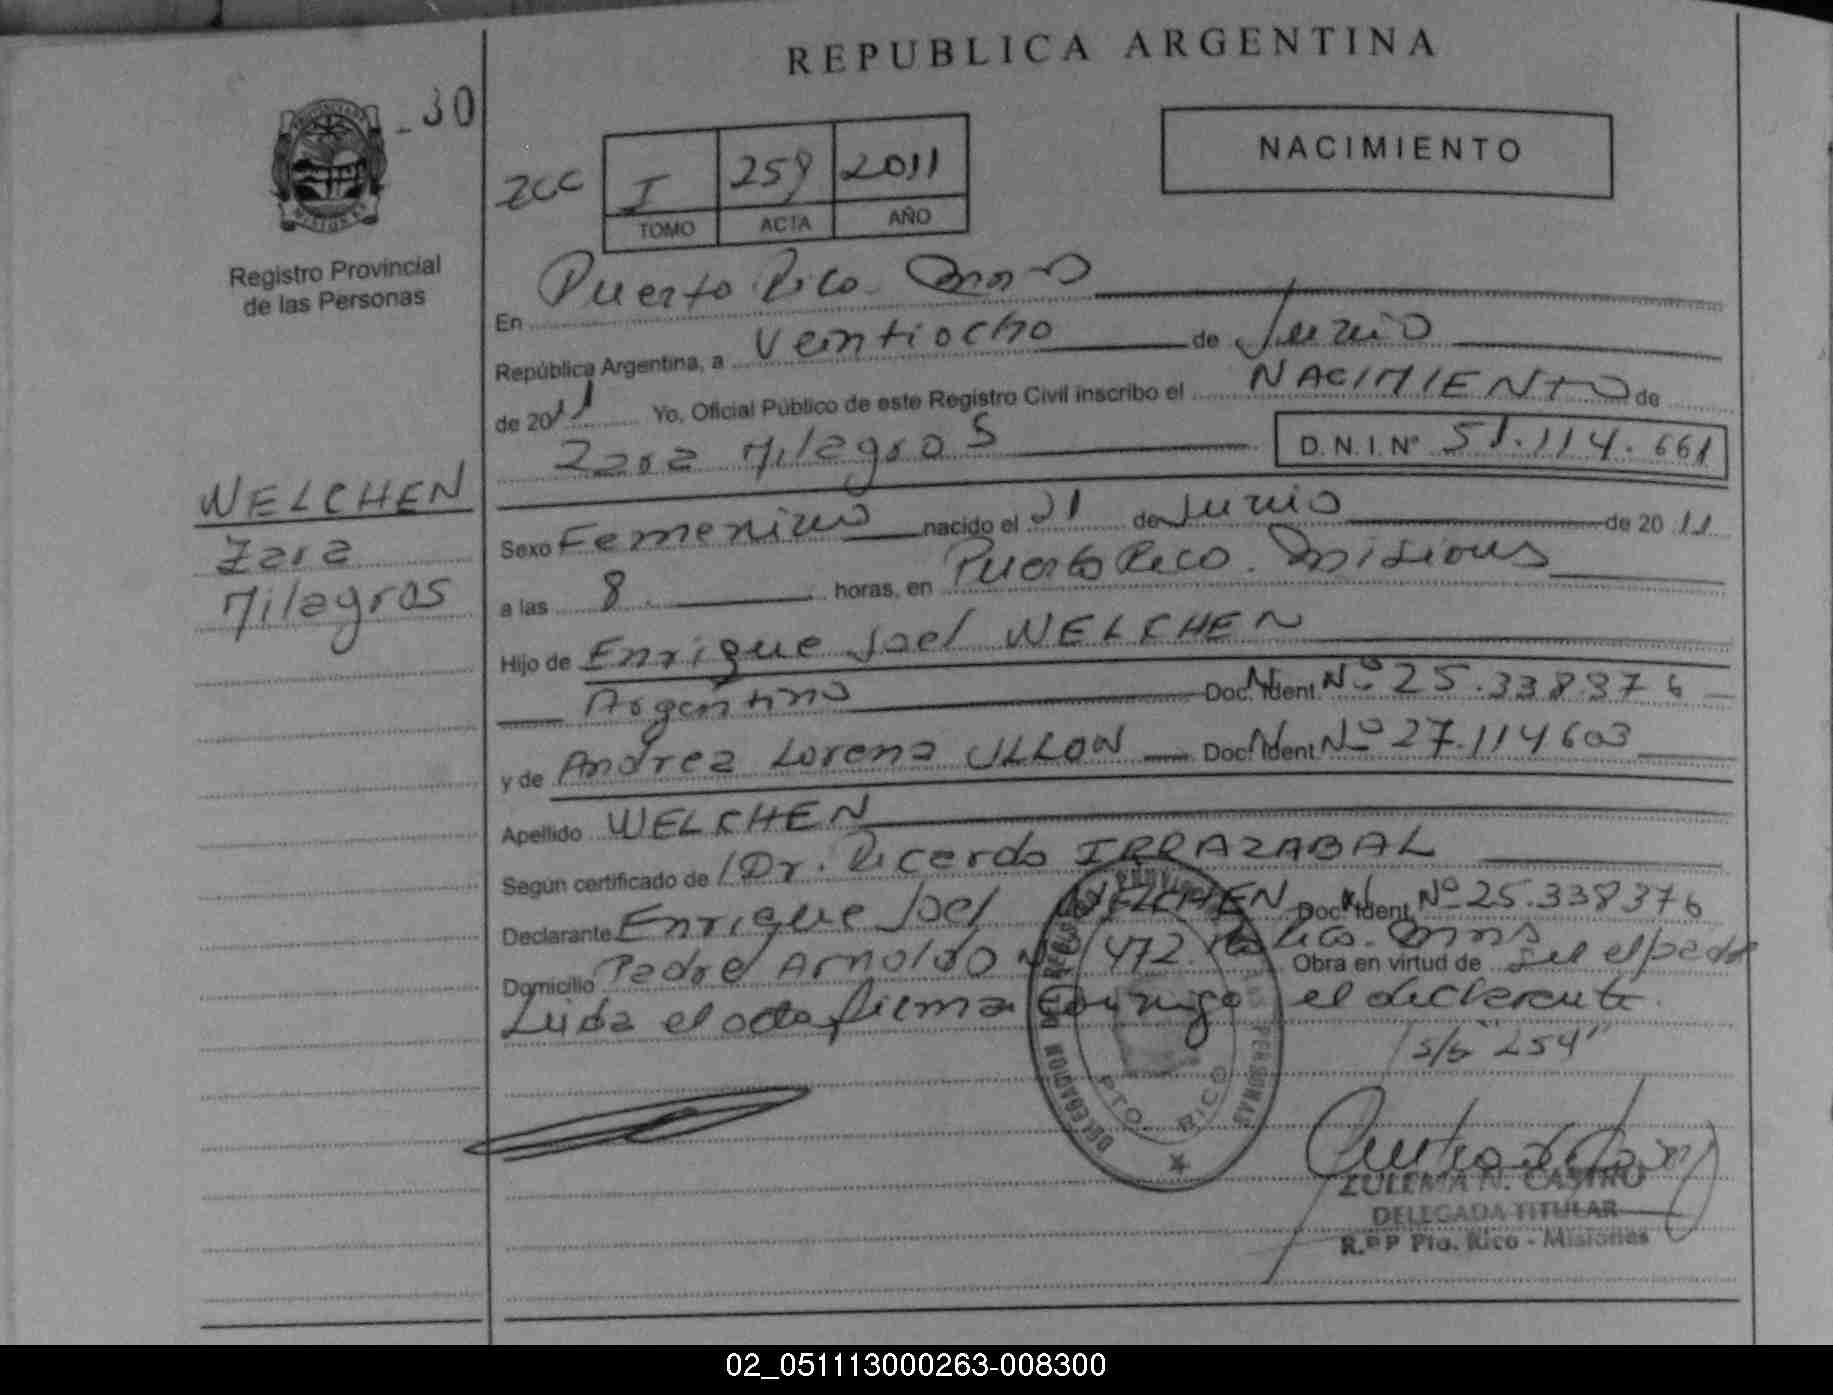 REPUBLICA ARGENTINA
30
PROVINCIA DE
MISIONES
Registro Provincial
de las Personas
ZCC
I 259 2011
TOMO ACTA AÑO
NACIMIENTO
En Puerto Rico Mnes
República Argentina, a Veintiocho de Junio
de 2011 Yo, Oficial Público de este Registro Civil inscribo el NACIMIENTO de
Zara Milagros D.N.I. Nº 51.114.661
WELCHEN
Zara
Milagros
Sexo Femenino nacido el 21 de Junio de 2011
a las 8 horas, en Puerto Rico. Misiones
Hijo de Enrique Joel WELCHEN
Argentino Doc. Ident Nº 25.338376
y de Andrea Lorena ULLON Doc. Ident Nº 27.114603
Apellido WELCHEN
Según certificado de Dr. Ricardo IRRAZABAL
Declarante Enrique Joel WELCHEN Doc. Ident Nº 25.338376
Domicilio Padre Arnoldo Nº 472. Pto Rico. Mnes Obra en virtud de Ser el padre
Leida el acta firma Conmigo el declarante.
s/s "254"
DELEGACION DE REGISTRO PROVINCIAL DE LAS PERSONAS
PTO. RICO
ZULEMA N. CASTRO
DELEGADA TITULAR
R.P.P Pto. Rico - Misiones
02_051113000263-008300